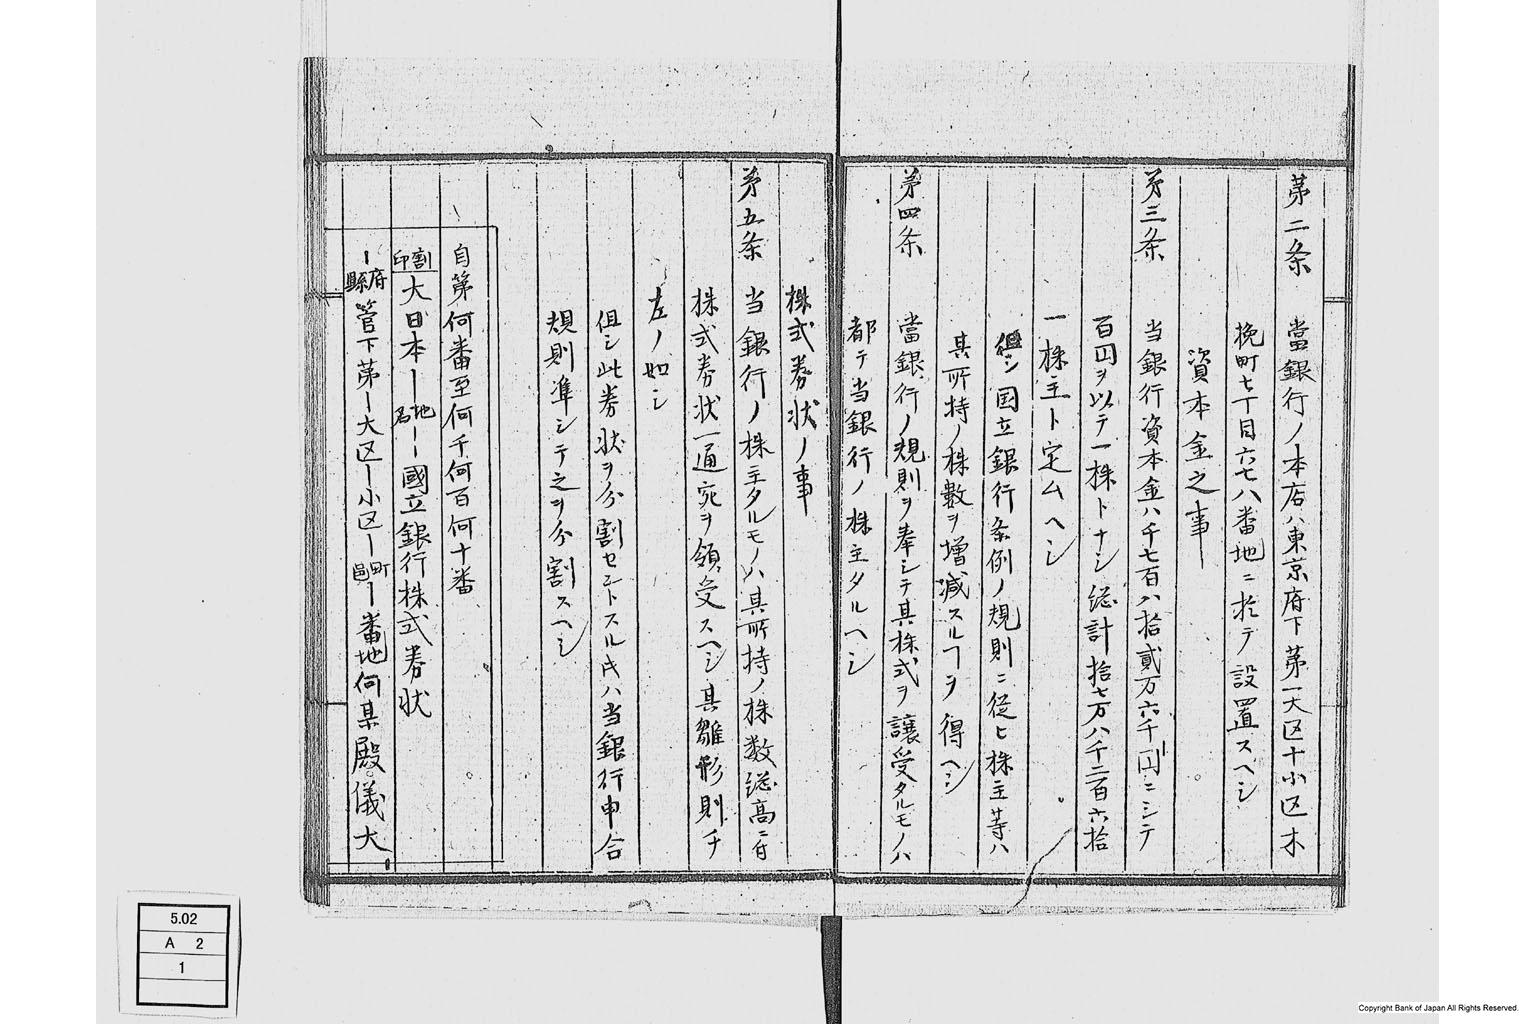 第二条　當銀行ノ本店ハ東京府下第一大区十小区木
挽町七丁目六七八番地ニ於テ設置スヘシ
資本金之事
第三条　当銀行資本金ハ千七百八拾貳万六千一円ニシテ
百円ヲ以テ一株トナシ総計拾七万八千二百六拾
一株主ト定ムヘシ
但シ国立銀行条例ノ規則ニ従ヒ株主等ハ
其所持ノ株数ヲ増減スルヿヲ得ヘシ
第四条　當銀行ノ規則ヲ奉シテ其株式ヲ譲受タルモノハ
都テ当銀行ノ株主タルヘシ
株式券状ノ事
第五条　当銀行ノ株主タルモノハ其所持ノ株数総高ニ付
株式券状一通宛ヲ領受スヘシ其雛形則チ
左ノ如シ
但シ此券状ヲ分割セントスル片ハ当銀行申合
規則準シテ之ヲ分割スヘシ
自第何番至何千何百何十番
割印　大日本ー地名ー國立銀行株式券状
ー府縣管下第ー大区ー小区ー町邑ー番地何某殿儀大
5.02
A 2
1
Copyright Bank of Japan All Rights Reserved.